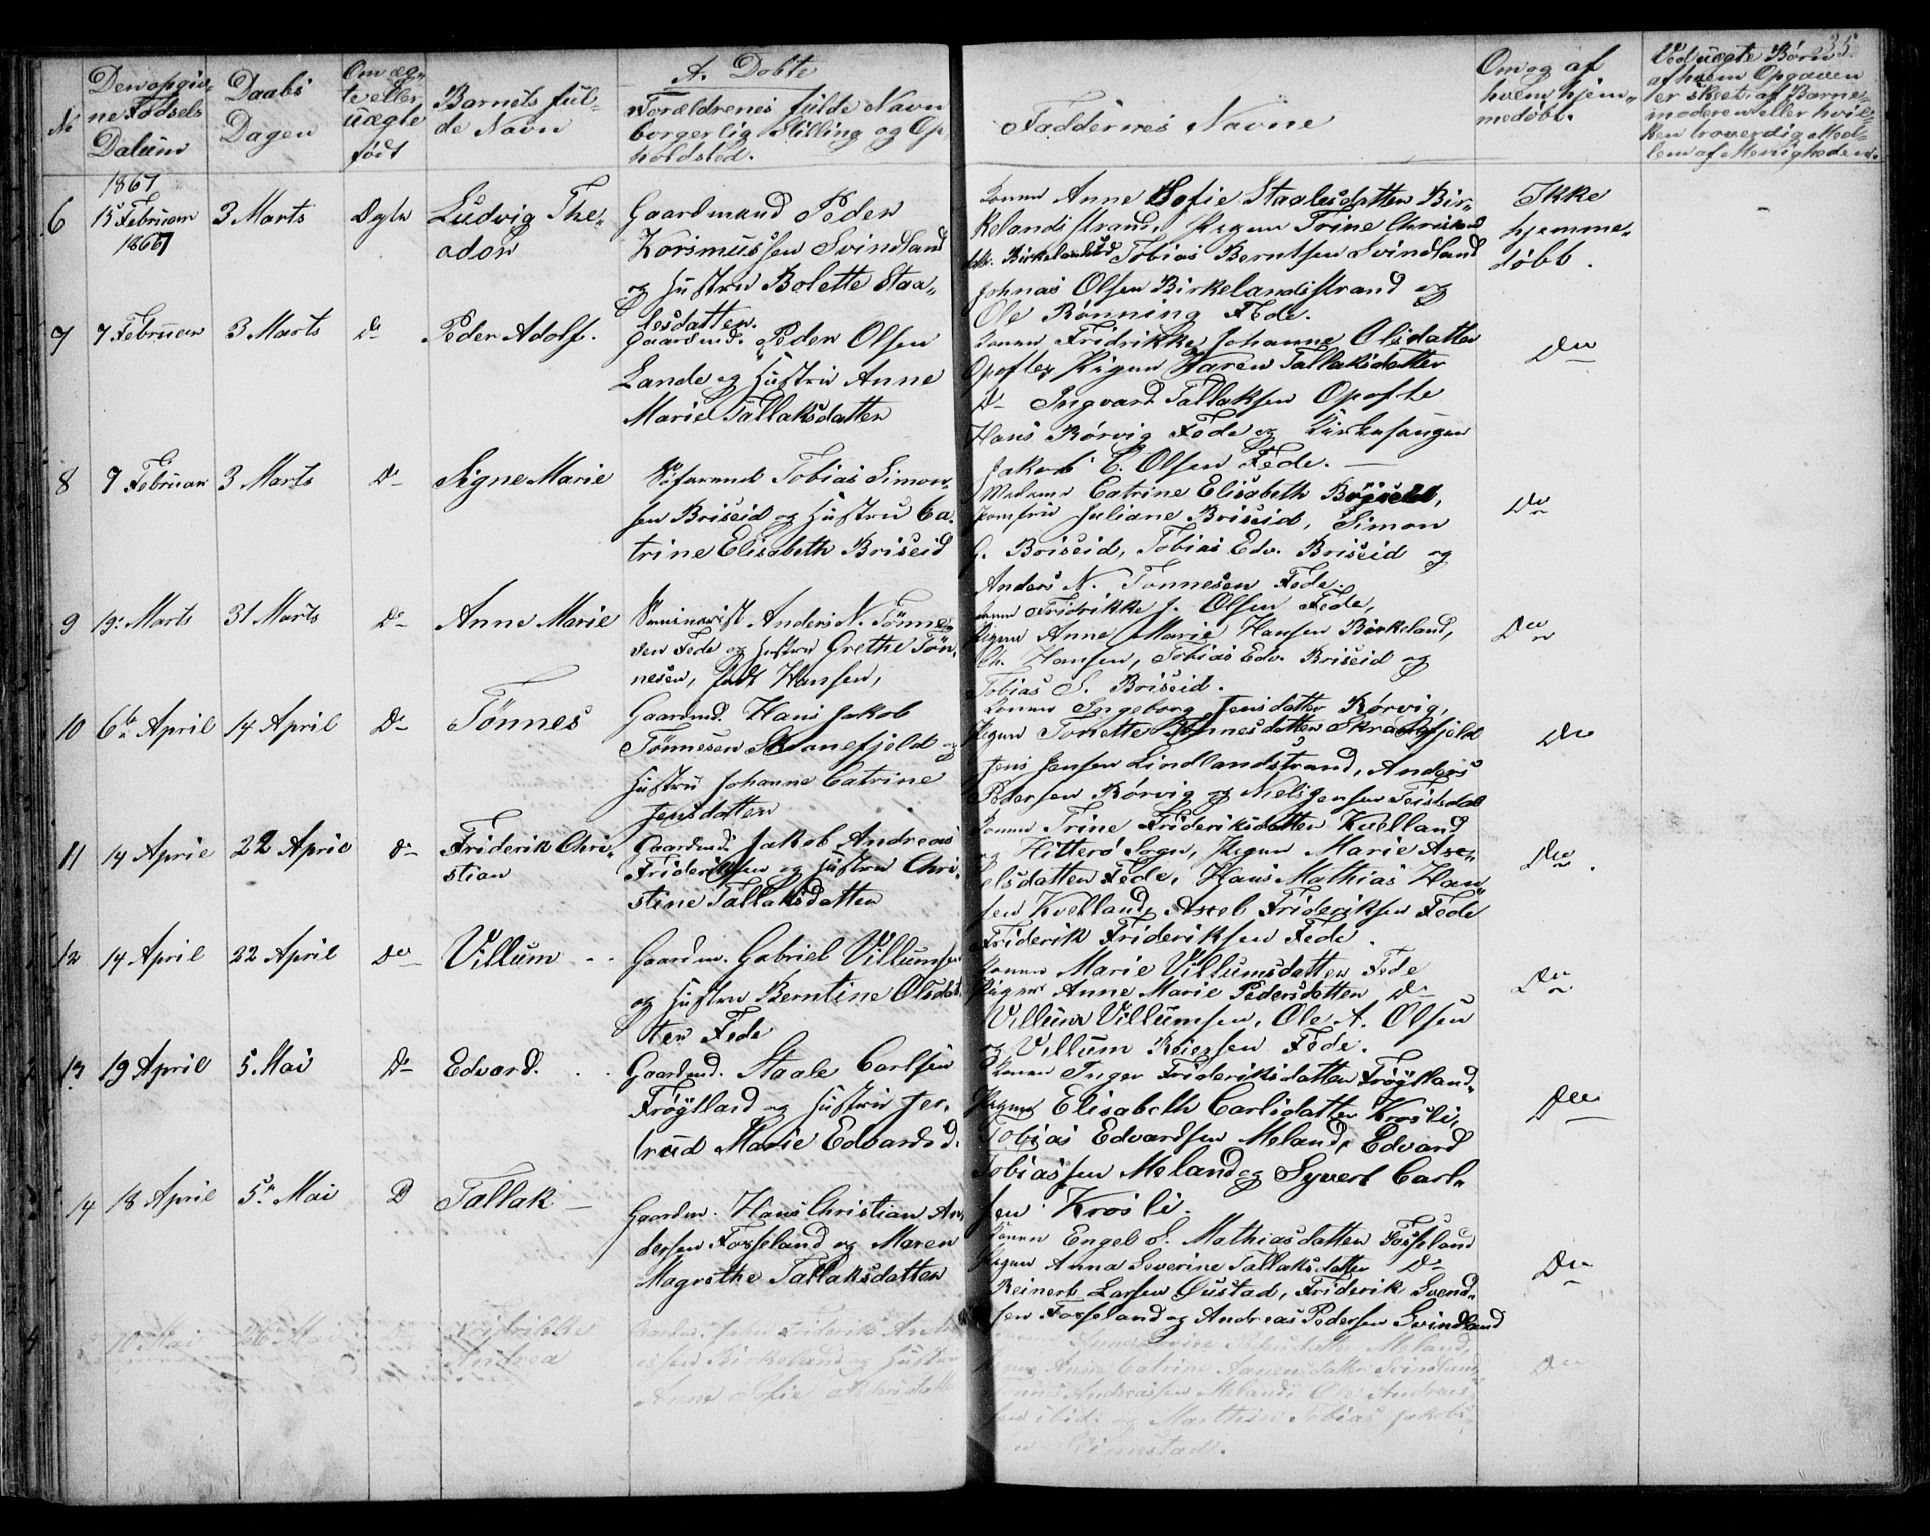 35.
A. Döbte
No
Den opgiv-
ne Födsels
Datum
Daabs
Dagen
Om æg-
te eller
uægte
født
Barnets ful-
de Navn
Forældrenes fulde Navn
borgerlig Stilling og Op-
holdsted.
Faddernes Navne
Om og af
hvem hjem-
medöbt.
Ved uægte Börn
af hvem Opgaven
er skeet: af Barne-
moderen eller hvil-
ken troværdig Med-
lem af Menigheden.
1867
6 15 Februar 3 Marts Ægte Ludvig The-
1867
odor
Gaardmand Peder
Korsmussen Svindland
og Hustru Bolette Staa-
lesdatter.
Konen Anne Sofie Staalesdatter Bir-
kelandsstrand, Pigen Trine Christens
datt. Birkeland Tobias Berntsen Svindland
Johnas Olsen Birkelandsstrand og
Ole Rönning Fede.
Ikke
hjemme-
döbt.
7 7 Februar 3 Marts Do Peder Adolf.
Gaardmd. Peder Olsen
Lande og Hustru Anne
Marie Tallaksdatter
Konen Fridrikke Johanne Olsdatter
Opofte, Pigen Karen Tallaksdatter
Do Ingvard Tallaksen Opofte
Hans Rörvig Fede og Kirkesanger
Jakob C. Olsen Fede.
Do
8 7 Februar 3 Marts Do Signe Marie
Söfarende Tobias Simon-
sen Briseid og Hustru Ca-
trine Elisabeth Briseid
Madame Catrine Elisabeth
Jomfru Juliane Briseid, Simon
G. Briseid, Tobias Edv. Briseid og
Anders N. Tönnesen Fede.
Do
9 19: Marts 31 Marts Do Anne Marie
Seminarist Anders N. Tönne-
sen Fede og Hustru Grethe Tön-
nesen, født Hansen,
Konen Fridrikke J. Olsen Fede,
Pigen Anne Marie Hansen Birkeland,
Ch. Hansen, Tobias Edv. Briseid og
Tobias S. Briseid.
Do
10 6te April 14 April Do Tönnes
Gaardmd. Hans Jakob
Tönnesen Skranefjeld og
Hustru Johanne Catrine
Jensdatter
Konen Ingeborg Jensdatter Rörvig,
Pigen Tonette Tönnesdatter Skranefjeld
Jens Jensen Lindlandstrand, Anders
Pedersen Rörvig og Niels Jensen Feisdal
Do
11 14 April 22 April Do Friderik Chri-
stian
Gaardmd. Jakob Andreas
Frideriksen og Hustru Chri-
stine Tallaksdatter
Konen Trine Frideriksdatter Kvelland
og Hitterö Sogn, Pigen Marie Axe-
elsdatter Fede, Hans Mathias Han-
sen Kvelland, Axel Frideriksen Fede
Friderik Frideriksen Fede.
Do
12 14 April 22 April Do Villum
Gaardm. Gabriel Villumsen
og Hustru Berntine Olsdat-
ter Fede
Konen Marie Villumsdatter Fede
Pigen Anne Marie Pedersdatter Do
Villum Villumsen, Ole A. Olsen
og Villum Reiersen Fede.
Do
13 19 April 5. Mai Do Edvard.
Gaardmd. Staale Carlsen
Fröylland og Hustru Jer-
trud Marie Edvardsd.
Konen Inger Frideriksdatter Fröylland,
Pigen Elisabeth Carlsdatter Krosli,
Tobias Edvardsen Meland, Edvard
Tobiassen Meland og Syvert Carl-
sen Krosli.
Do
14 18 April 5te Mai D Tallak
Gaardm. Hans Christian An-
dersen Fosseland og Maren
Magrethe Tallaksdatter
Konen Engel S. Mathiasdatter Fosseland
Pigen Anna Severine Tallaksdatter Do
Reinert Larsen Öustad, Friderik Svend-
sen Fosseland og Andreas Pedersen Svindland
Do
10 Mai 26 Mai Fridrikke
Andrea
Friderik Andre-
assen Birkeland og Hustru
Anne Sofie
Meland,
Pigen Anne Catrine Aanensdatter Svindland
Andreassen Meland, Ole Andreas-
sen ibid. og Marthin Tobias Jakobs-
Do